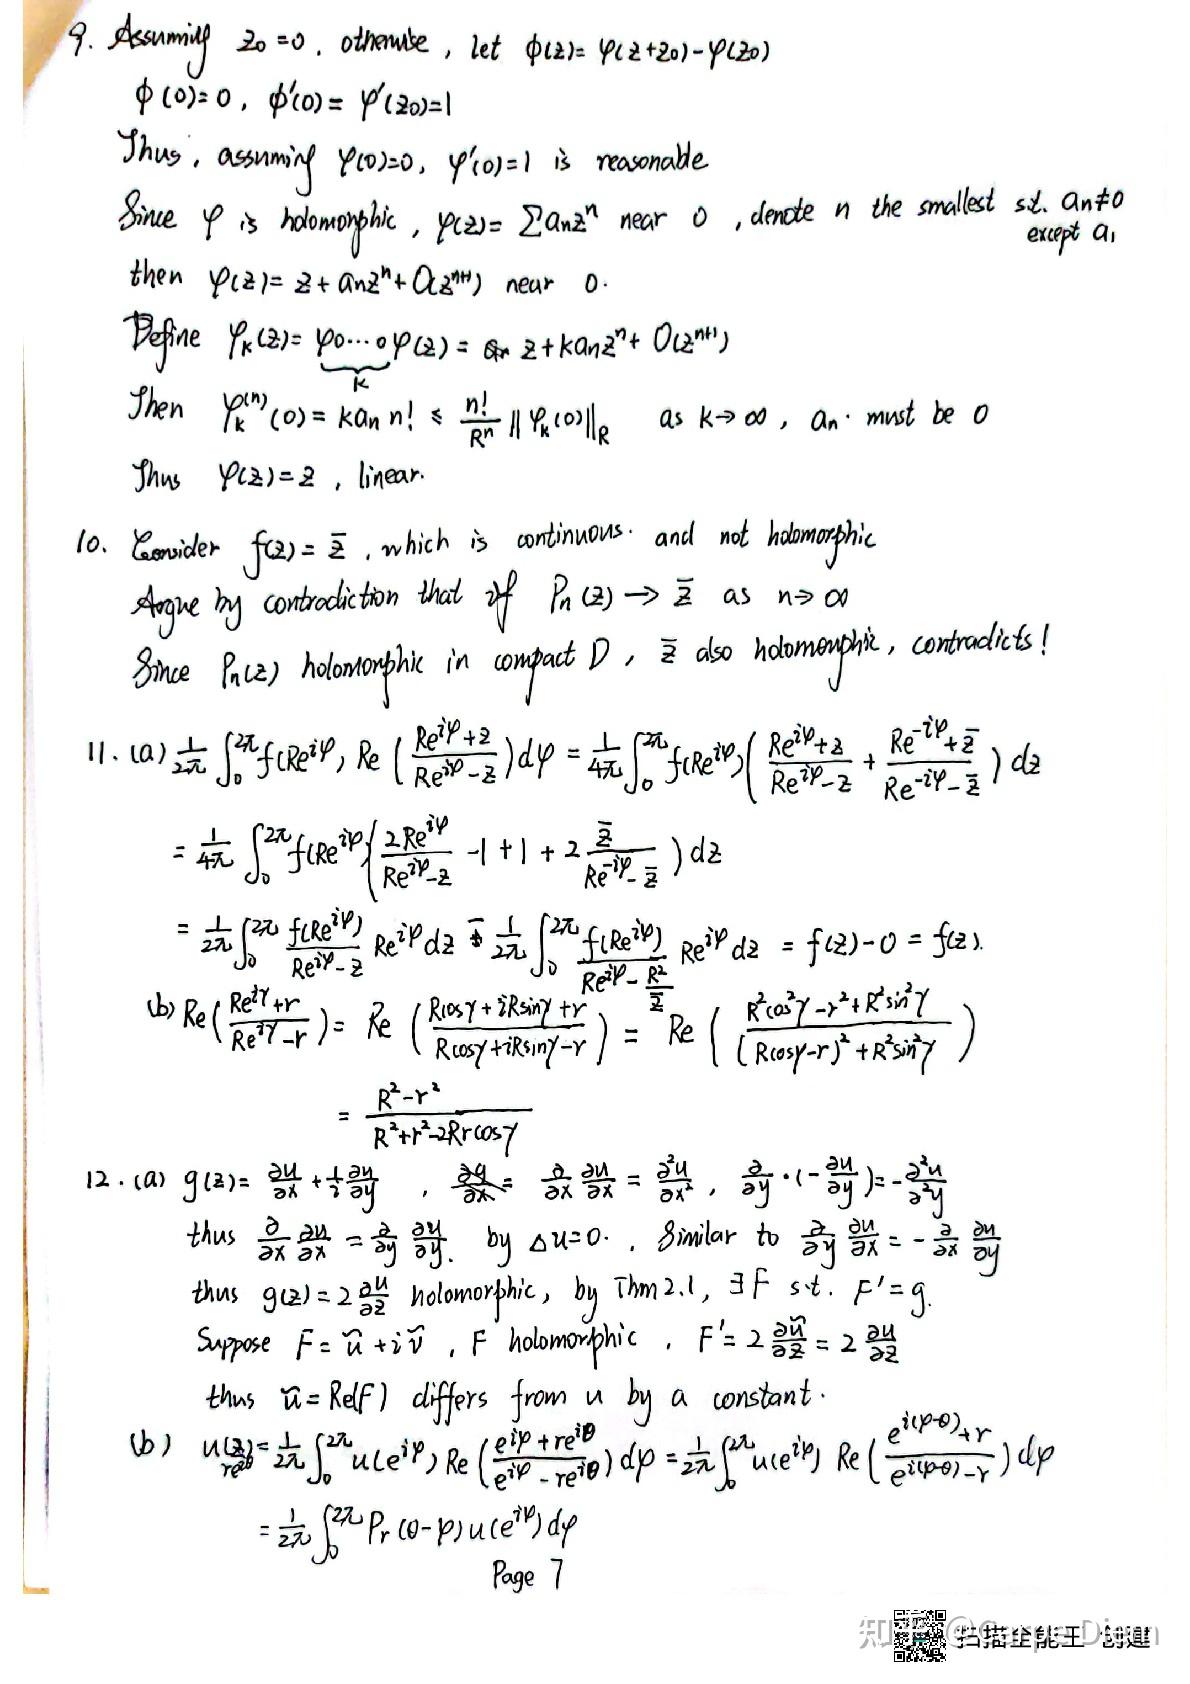 9. Assuming z₀=0, otherwise, let ϕ(z)= φ(z+z₀)-φ(z₀)
ϕ(0)=0, ϕ'(0)= φ'(z₀)=1
Thus, assuming φ(0)=0, φ'(0)=1 is reasonable
Since φ is holomorphic, φ(z)= Σaₙzⁿ near 0, denote n the smallest s.t. aₙ≠0
except a₁
then φ(z)= z+aₙzⁿ+O(zⁿ⁺¹) near 0.
Define φₖ(z)= φ∘⋯∘φ(z) = z+kaₙzⁿ+O(zⁿ⁺¹)
k
Then φₖ⁽ⁿ⁾(0)= kaₙ n! ≤ n!/Rⁿ ‖φₖ(0)‖_R as k→∞, aₙ must be 0
Thus φ(z)=z, linear.
10. Consider f(z)= z̄, which is continuous. and not holomorphic
Argue by contradiction that if Pₙ(z)→ z̄ as n→∞
Since Pₙ(z) holomorphic in compact D, z̄ also holomorphic, contradicts!
11. (a) 1/2π ∫₀^{2π} f(Re^{iφ}) Re((Re^{iφ}+z)/(Re^{iφ}-z))dφ = 1/4π ∫₀^{2π} f(Re^{iφ})((Re^{iφ}+z)/(Re^{iφ}-z) + (Re^{-iφ}+z̄)/(Re^{-iφ}-z̄))dz
= 1/4π ∫₀^{2π} f(Re^{iφ})(2Re^{iφ}/(Re^{iφ}-z) -1+1+2 z̄/(Re^{-iφ}-z̄))dz
= 1/2π ∫₀^{2π} f(Re^{iφ})/(Re^{iφ}-z) Re^{iφ}dz - 1/2π ∫₀^{2π} f(Re^{iφ})/(Re^{iφ}-R²/z̄) Re^{iφ}dz = f(z)-0 = f(z).
(b) Re((Re^{iγ}+r)/(Re^{iγ}-r)) = Re((Rcosγ+iRsinγ+r)/(Rcosγ+iRsinγ-r)) = Re((R²cos²γ-r²+R²sin²γ)/((Rcosγ-r)²+R²sin²γ))
= (R²-r²)/(R²+r²-2Rrcosγ)
12. (a) g(z)= ∂u/∂x + 1/i ∂u/∂y, ∂/∂x ∂u/∂x = ∂²u/∂x², ∂/∂y·(-∂u/∂y)= -∂²u/∂²y
thus ∂/∂x ∂u/∂x = ∂/∂y ∂u/∂y. by Δu=0., Similar to ∂/∂y ∂u/∂x = -∂/∂x ∂u/∂y
thus g(z)= 2 ∂u/∂z holomorphic, by Thm 2.1, ∃F s.t. F'=g.
Suppose F= ũ+iṽ, F holomorphic, F'= 2 ∂ũ/∂z = 2 ∂u/∂z
thus ũ= Re(F) differs from u by a constant.
(b) u(z)= 1/2π ∫₀^{2π} u(e^{iφ}) Re((e^{iφ}+re^{iθ})/(e^{iφ}-re^{iθ}))dφ = 1/2π ∫₀^{2π} u(e^{iφ}) Re((e^{i(φ-θ)}+r)/(e^{i(φ-θ)}-r))dφ
= 1/2π ∫₀^{2π} Pᵣ(θ-φ)u(e^{iφ})dφ
Page 7
知乎 @Carpe Diem
扫描全能王 创建